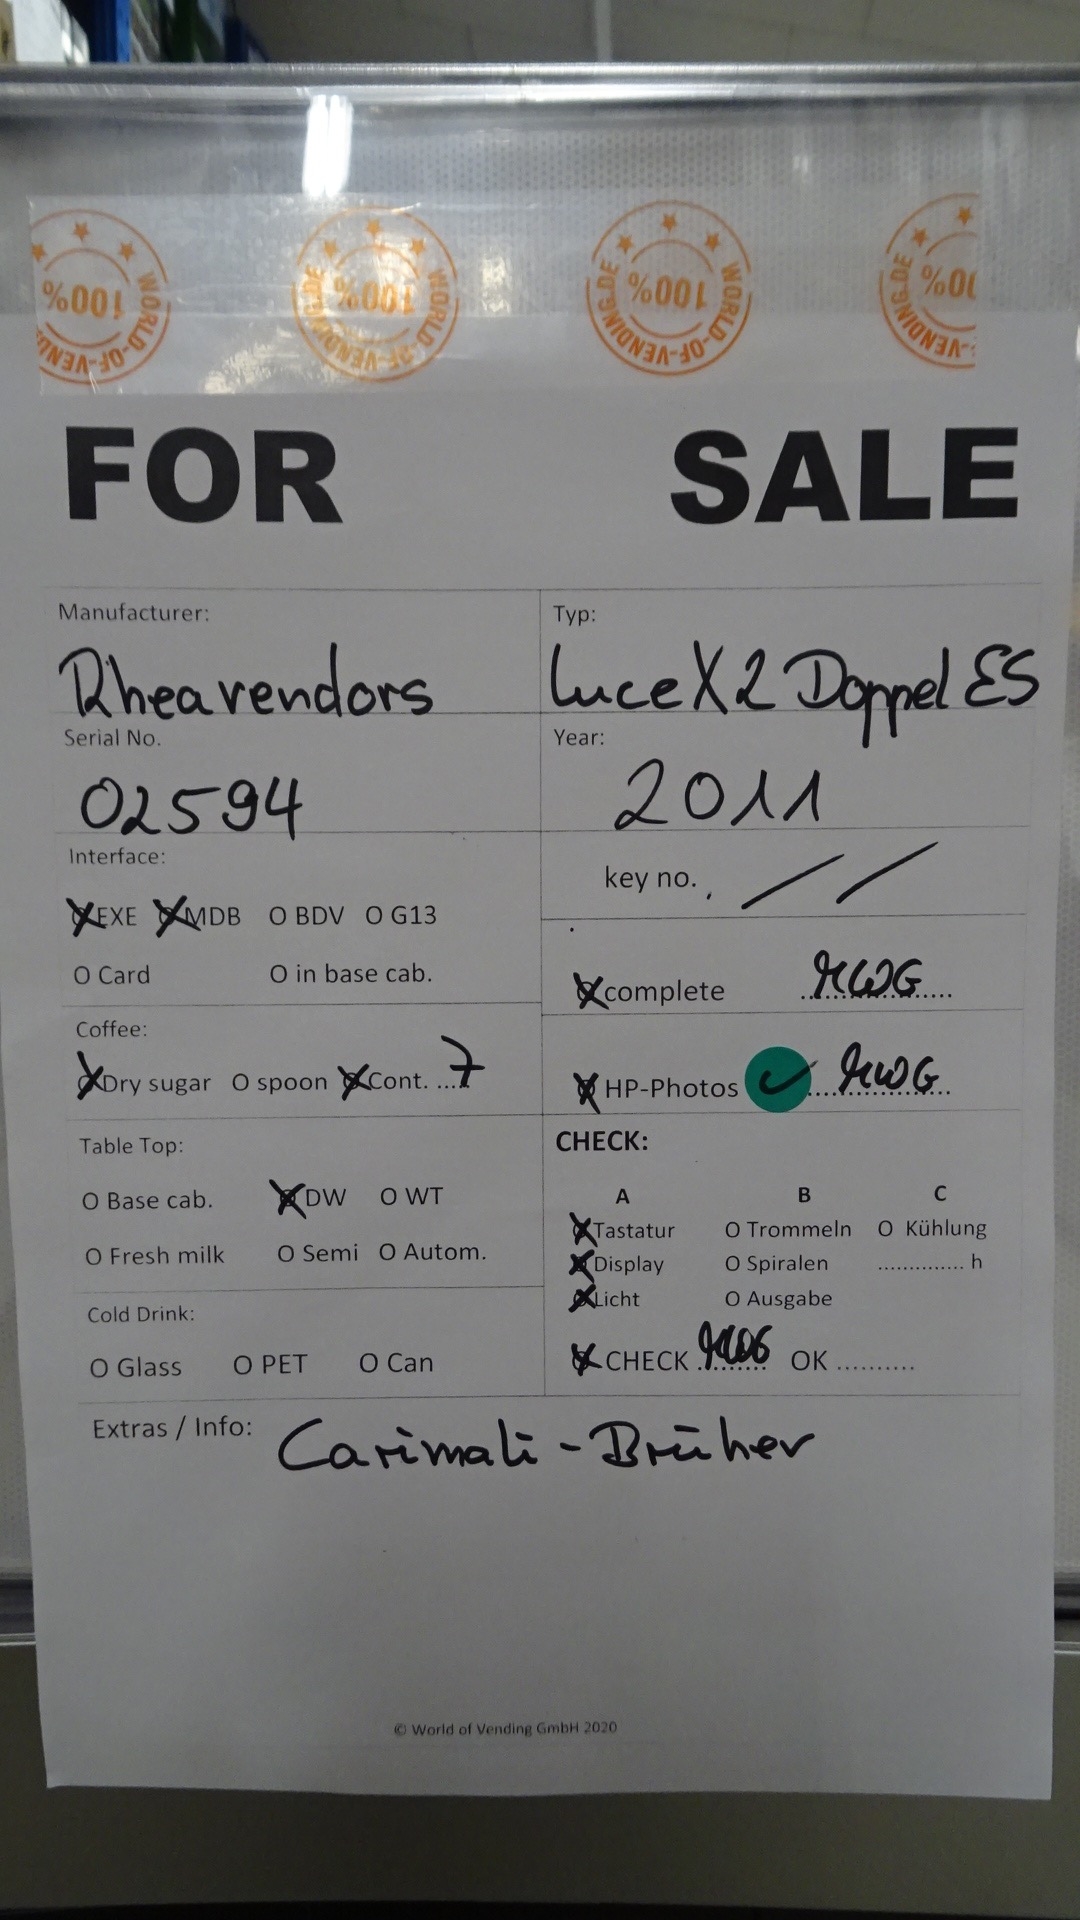 100% WORLD-OF-VENDING.DE
100% WORLD-OF-VENDING.DE
100% WORLD-OF-VENDING.DE
FOR SALE
Manufacturer: Typ:
Rheavendors Luce X2 Doppel ES
Serial No. Year:
02594 2011
Interface:
key no. //
EXE MDB O BDV O G13
O Card O in base cab.
complete
Coffee:
Dry sugar O spoon Cont. ...7
HP-Photos
Table Top: CHECK:
O Base cab. DW O WT
A B C
Tastatur O Trommeln O Kühlung
O Fresh milk O Semi O Autom.
Display O Spiralen .............. h
Licht O Ausgabe
Cold Drink:
O Glass O PET O Can
CHECK OK ..........
Extras / Info: Carimali - Brüher
© World of Vending GmbH 2020